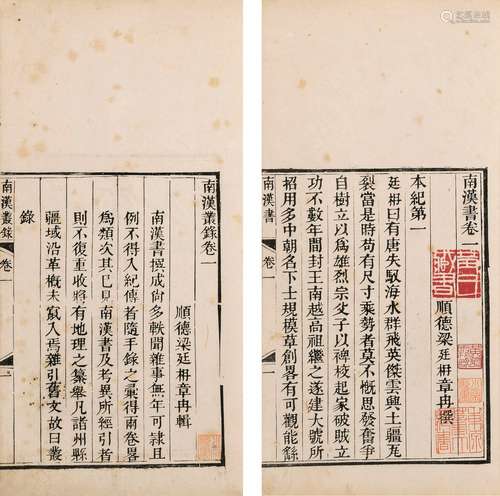 南漢書卷一
順德梁廷枏章冉撰
本紀第一
廷枏曰有唐失馭海水群飛英傑雲興土疆瓦
裂當是時苟有尺寸乘勢者莫不慨思發奮爭
自樹立以爲雄烈宗父子以裨校起家破賊立
功不數年間封王南越品祖繼之遂建大號所
招用多中朝名下士規模草創畧有可觀能餘
南漢書 卷一 一
南漢叢錄卷一
順德梁廷枏章冉輯
南漢書撰成尚多軼聞雜事無年可隸且
例不得入紀傳者隨手錄之彙得兩卷畧
爲類次其已見南漢書及考異所經引者
則不復重收將有地理之纂舉凡諸州縣
疆域沿革概未竄入焉雜引舊文故曰叢
錄
南漢叢錄 卷一 一